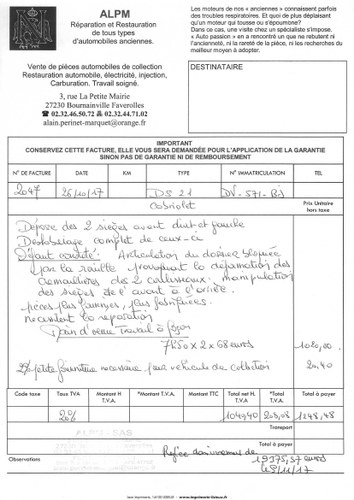 ALPM
Réparation et Restauration
de tous types
d'automobiles anciennes.
Vente de pièces automobiles de collection
Restauration automobile, électricité, injection,
Carburation. Travail soigné.
3, rue La Petite Mairie
27230 Bournainville Faverolles
☎ 02.32.46.50.72 ✆ 02.32.44.71.02
alain.perinet-marquet@orange.fr
Les moteurs de nos « anciennes » connaissent parfois
des troubles respiratoires. Et quoi de plus déplaisant
qu'un moteur qui tousse ou s'époumone?
Dans ce cas, une visite chez un spécialiste s'impose.
« Auto passion » en a rencontré un que ne rebutent ni
l'ancienneté, ni la rareté de la pièce, ni les recherches du
meilleur moyen à adopter.
DESTINATAIRE
IMPORTANT
CONSERVEZ CETTE FACTURE, ELLE VOUS SERA DEMANDÉE POUR L'APPLICATION DE LA GARANTIE
SINON PAS DE GARANTIE NI DE REMBOURSEMENT
N° DE FACTURE DATE KM TYPE N° IMMATRICULATION TEL
2047 26/10/17 DS 21 DV-571-
Cabriolet
Prix Unitaire
hors taxe
Dépose des 2 sièges avant droit et gauche
complet de ceux-ci
Défaut constaté: Articulation du dossier bloquée
par la rouille provoquant la déformation des
crémaillères des 2 manipulation
des sièges de l'avant à l'arrière
pièces plus fournies, plus fabriquées.
necessitant la reparation
main d'œuvre travail à façon
7H50 x 2 x 68 euros 1020,00
2% petite fourniture necessaire pour vehicule de collection 20,40
Code taxe Taux TVA Montant H T.V.A. Montant TTC Total net H. T.V.A. N° T.V.A. Total à payer
20% 1040,40 208,08 1248,48
Transport
ALPM SAS
Total à payer
Observations
19375,57 euros
/11/17
www.imprimerie-lisieux.fr